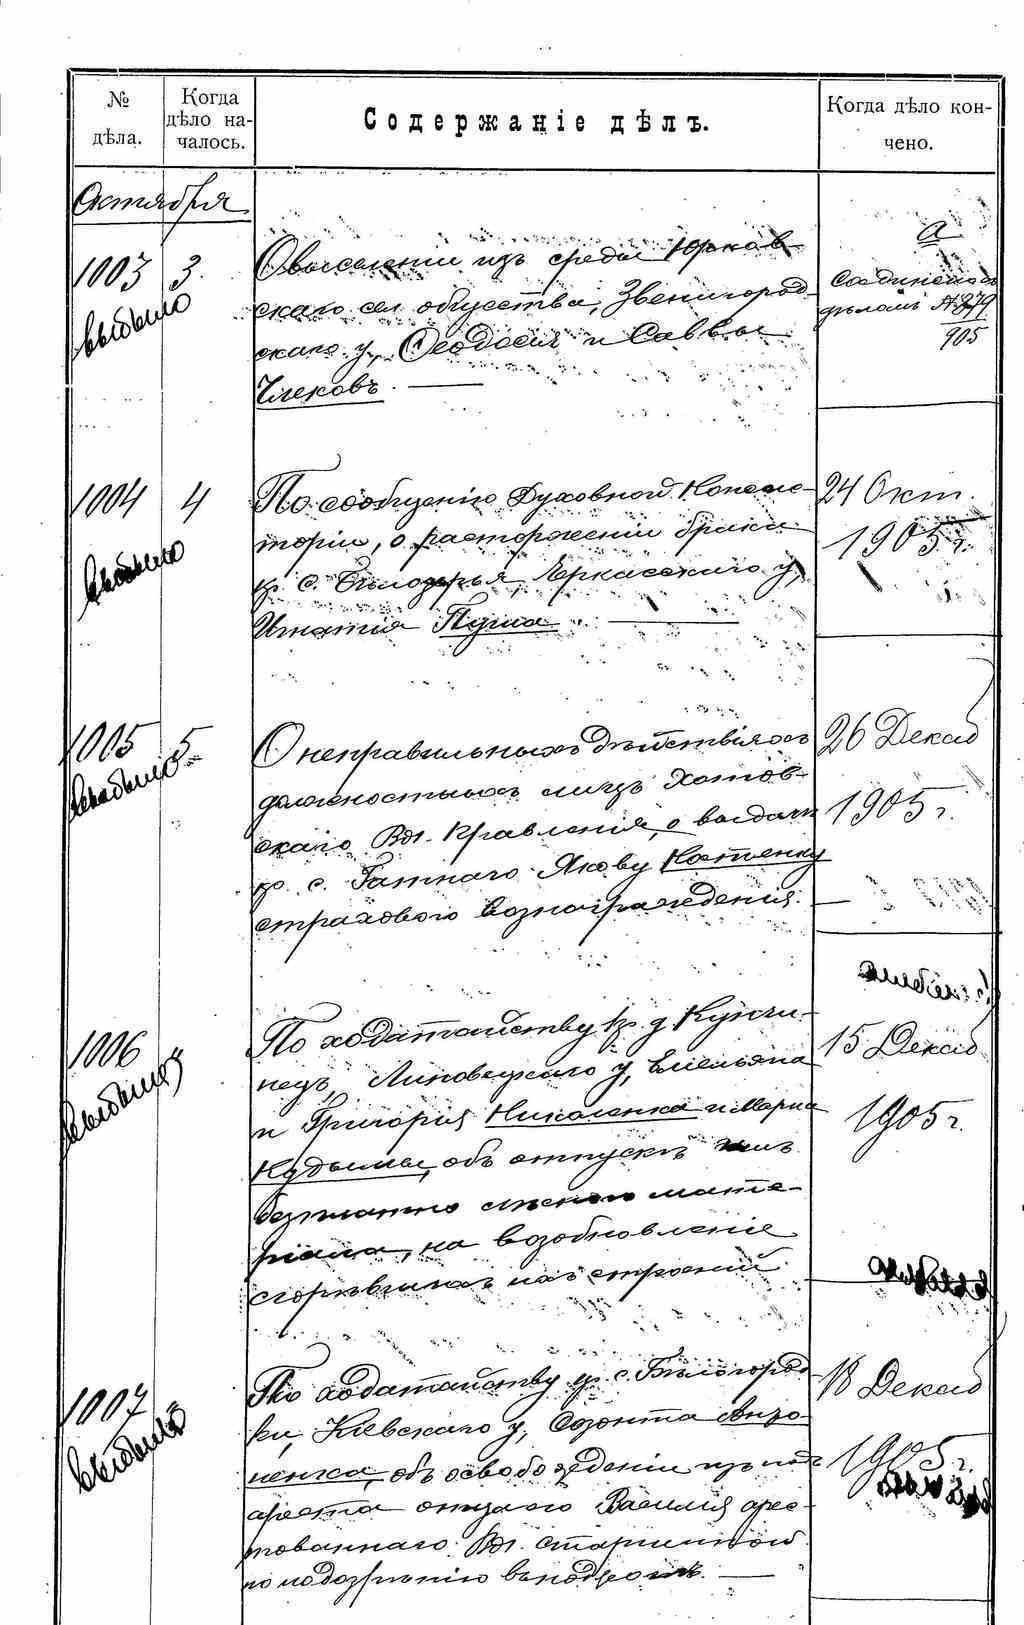 № дѣла.
Когда дѣло началось.
Содержаніе дѣлъ.
Когда дѣло кончено.
Октября
1003 3.
выбыло
О выселеніи изъ среды Юрков
скаго сел общества, Звенигород-
скаго у, Ѳеодосія и Саввы
Члековъ.
а
соединено съ
дѣломъ № 279
905
1004 4
выбыло
По сообщенію Духовной Консис-
торіи, о расторженіи брака
кр с. Бѣлозерья, Черкасскаго у,
Игнатія Пуша
24 Окт.
1905 г.
1005 5
выбыло
О неправильныхъ дѣйствіяхъ
должностныхъ лицъ Хотов-
скаго Вол. Правленія, о выдачи
кр. с. Гатнаго Якову Костенку
страхового вознагражденія.
26 Декаб
1905 г.
1006
выбыло
По ходатайству кр. д
нецъ, Липовецкаго у, Емельяна
и Григорія Николенка и Марка
Кудымы, объ отпускѣ имъ
безплатно лѣсного мате-
ріала, на возобновленіе
сгорѣвшихъ ихъ строеній
15 Декаб
1905 г.
1007
выбыло
По ходатайству кр с. Бѣлогород
ки, Кіевскаго у, Созонта
ненка, объ освобожденіи изъ подъ
ареста Василія арес-
тованнаго Вол. старшиной
по подозрѣнію
18 Декаб
1905 г.